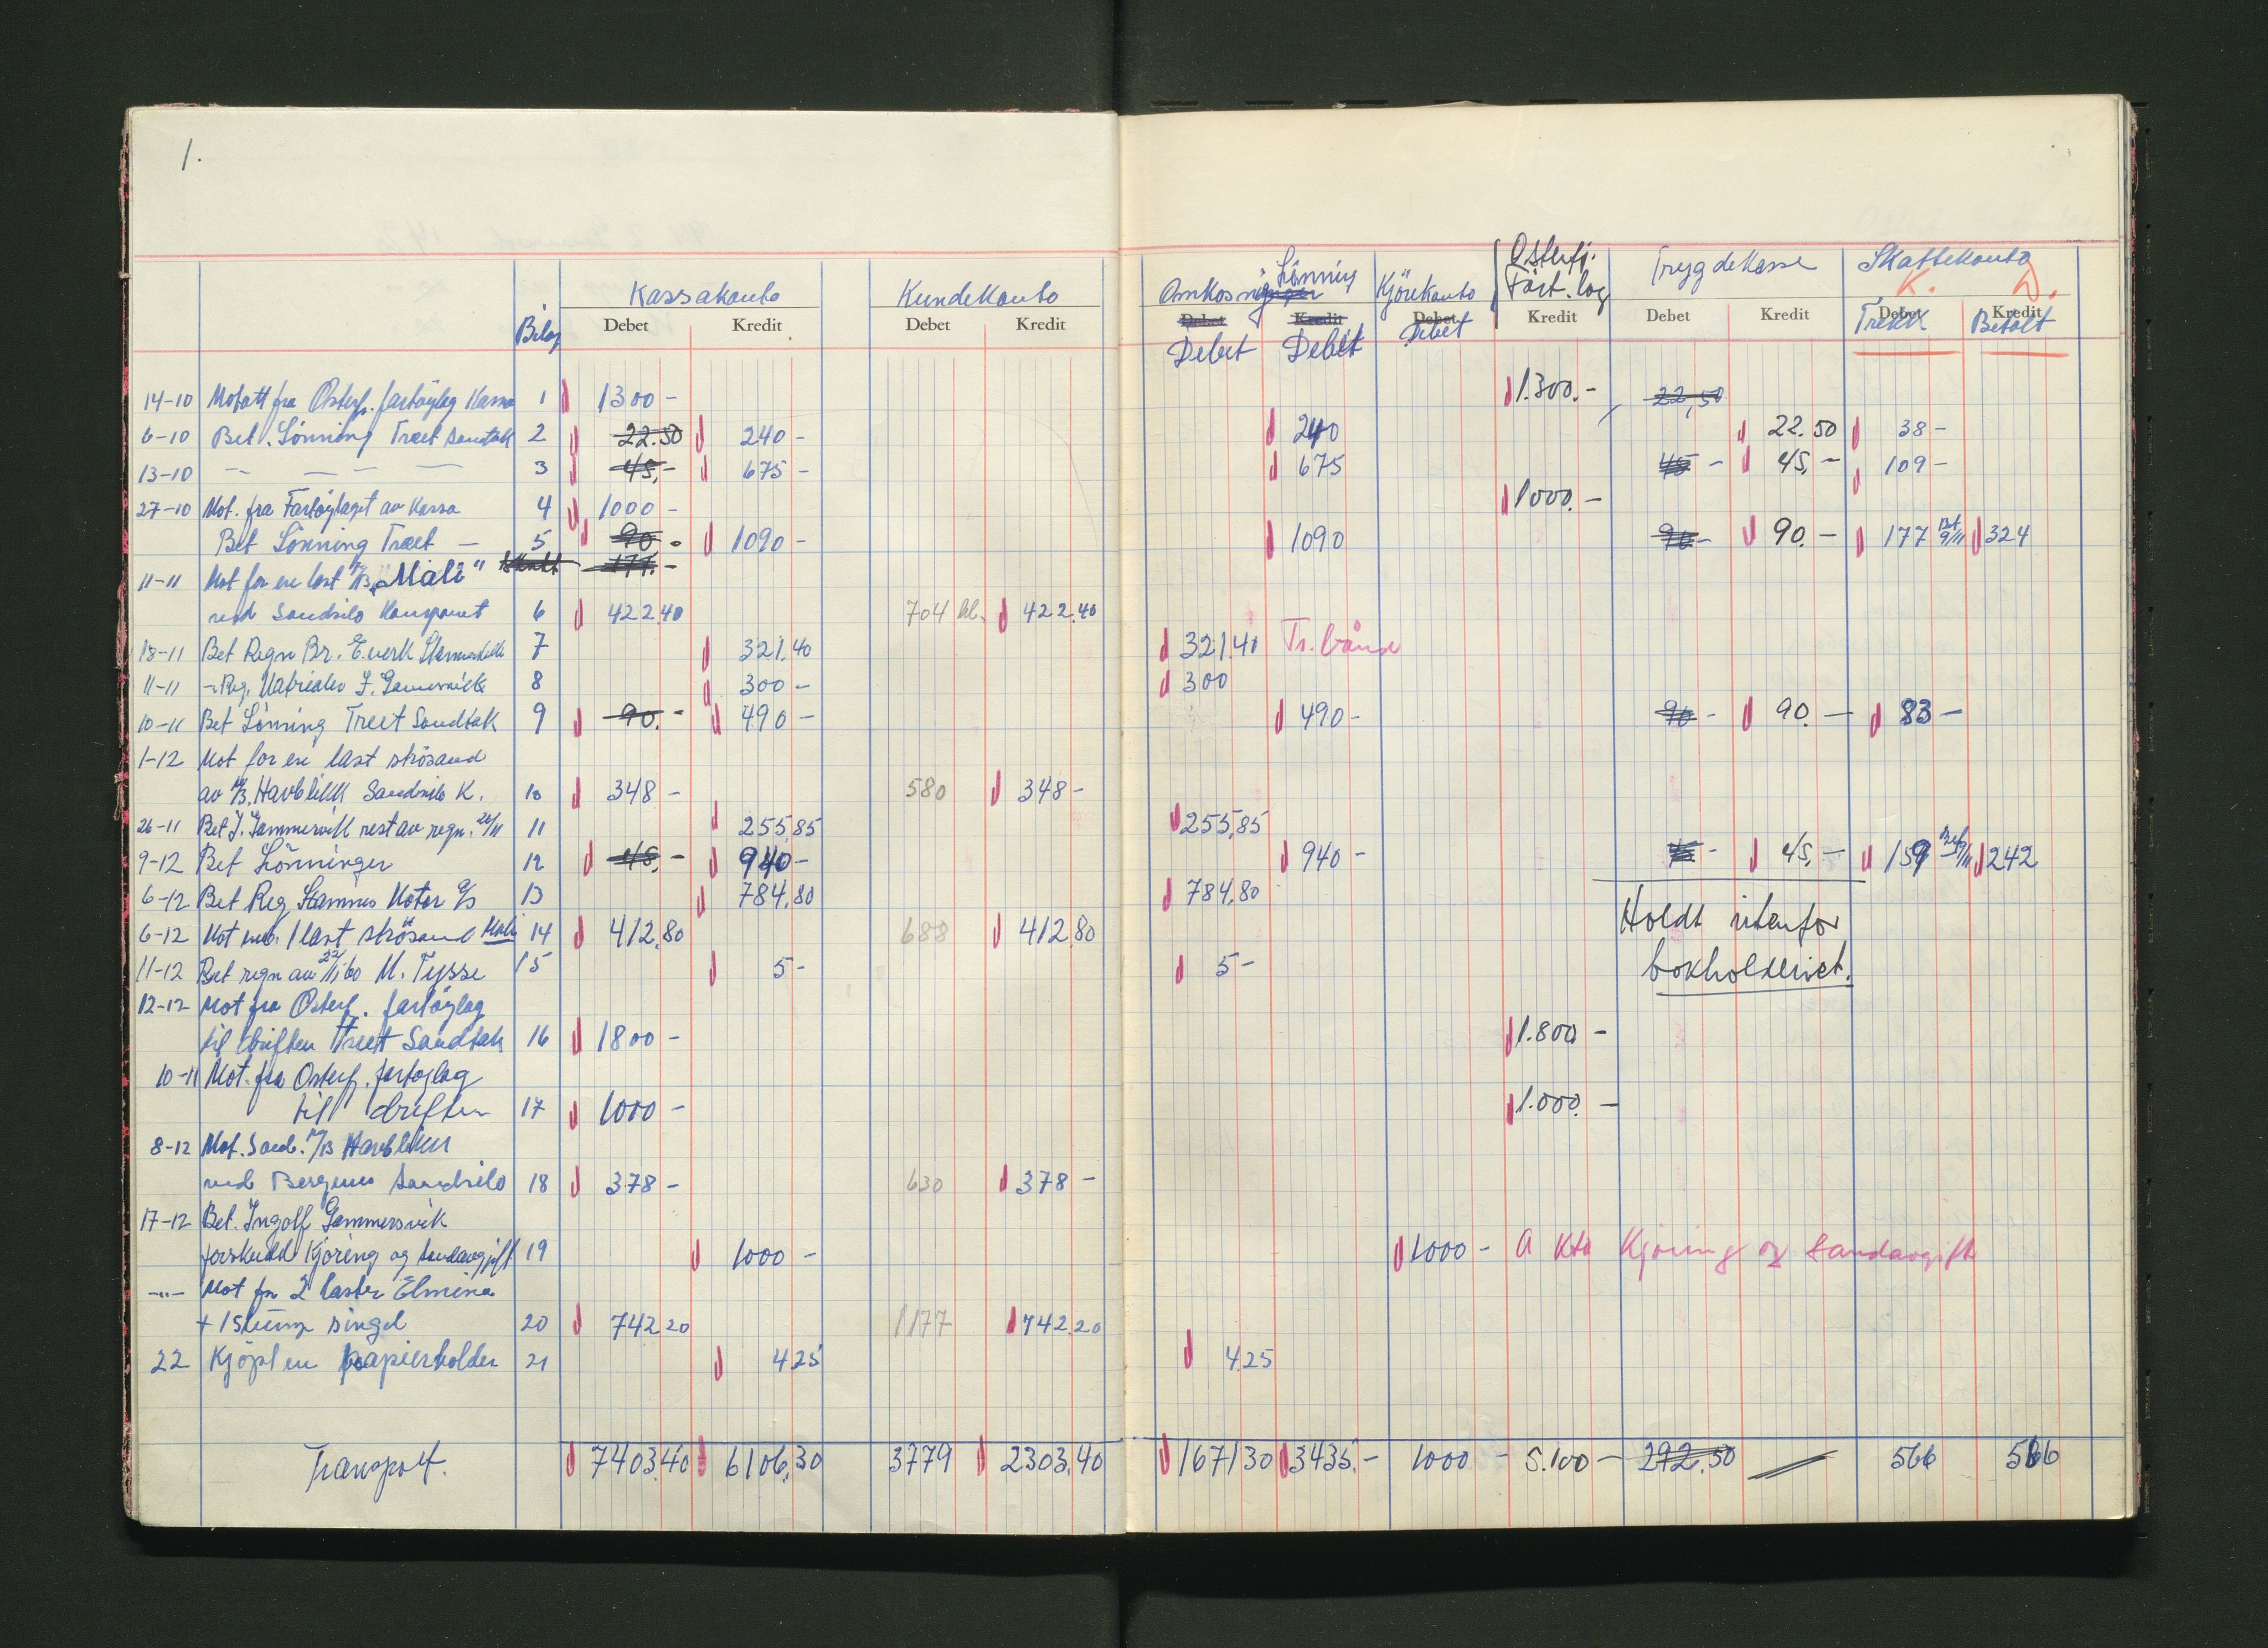 1.
Kassakonto Kundekonto Omkosninger Lönning Kjörekonto Osterfj. Fart.lag Trygdekasse Skattekonto
K. D.
Bilag Debet Kredit Debet Kredit Debet Kredit Debet Kredit Debet Kredit Debet Kredit
Debet Debet Debet Trekk Betalt
14-10 Motatt fra Osterfj. fartöylag Kassa 1 1300 - 1.300.- 22,50
6-10 Bet. Lönning Træet Sandtak 2 22.50 240 - 240 22.50 38 -
13-10 — — — — 3 45,- 675 - 675 45 - 45,- 109 -
27-10 Mot. fra Fartöylaget av Kassa 4 1000 - 1000.-
Bet Lönning Træet — 5 90.- 1090 - 1090 90 - 90.- 177 Bet 9/11 324
11-11 Mot for en last M/B "Mali" Skatt 177.-
ved Sandsilo Kompaniet 6 422.40 704 hl. 422.40
18-11 Bet Regn Br. E.verk 7 321.40 321.40 Tr. bånd
11-11 - Reg. J. Gammersvik 8 300 - 300
10-11 Bet Lönning Træet Sandtak 9 90.- 490 - 490 - 90 - 90.- 83 -
1-12 Mot for en last strösand
av M/B. Havblikk Sandsilo K. 10 348 - 580 348 -
26-11 Bet J. Gammersvik rest av regn. 26/11 11 255,85 255,85
9-12 Bet Lönninger 12 45,- 940 - 940 - 45 - 45,- 159 - 242
6-12 Bet Reg Stamnes Motor A/S 13 784,80 784,80
6-12 Mot 1 last strösand Mali 14 412,80 688 412,80
Holdt utenfor
bokholderiet.
11-12 Bet regn av 22/11 60 M. Tysse 15 5 - 5 -
12-12 Mot fra Osterf. fartöylag
til driften Træet Sandtak 16 1800 - 1.800 -
10-11 Mot. fra Osterf. fartöylag
til driften 17 1000 - 1.000. -
8-12 Mot. Sand. M/B Havblikk
ved Bergens Sandsilo 18 378 - 630 378 -
17-12 Bet. Ingolf Gammersvik
forskudd Kjöring og Sandavgift 19 1000 - 1000 - A Kto Kjöring og Sandavgift
-"- Mot for 2 laster Elmina
+ 1 slump singel 20 742 20 1177 742.20
22 Kjöpt en papierholder 21 4.25 4.25
Transport. 7403,40 6106,30 3779 2303,40 1671 30 3435.- 1000 - 5.100 - 292,50 566 566